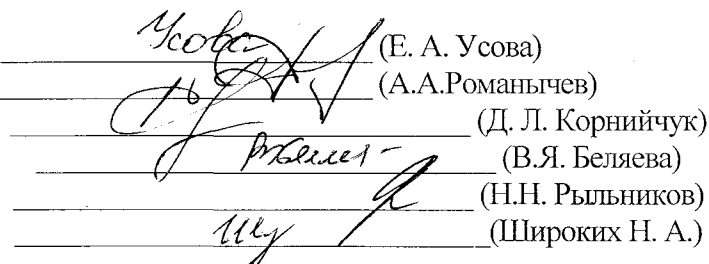 Усова (Е. А. Усова)
(А.А.Романычев)
(Д. Л. Корнийчук)
(В.Я. Беляева)
(Н.Н. Рыльников)
(Широких Н. А.)